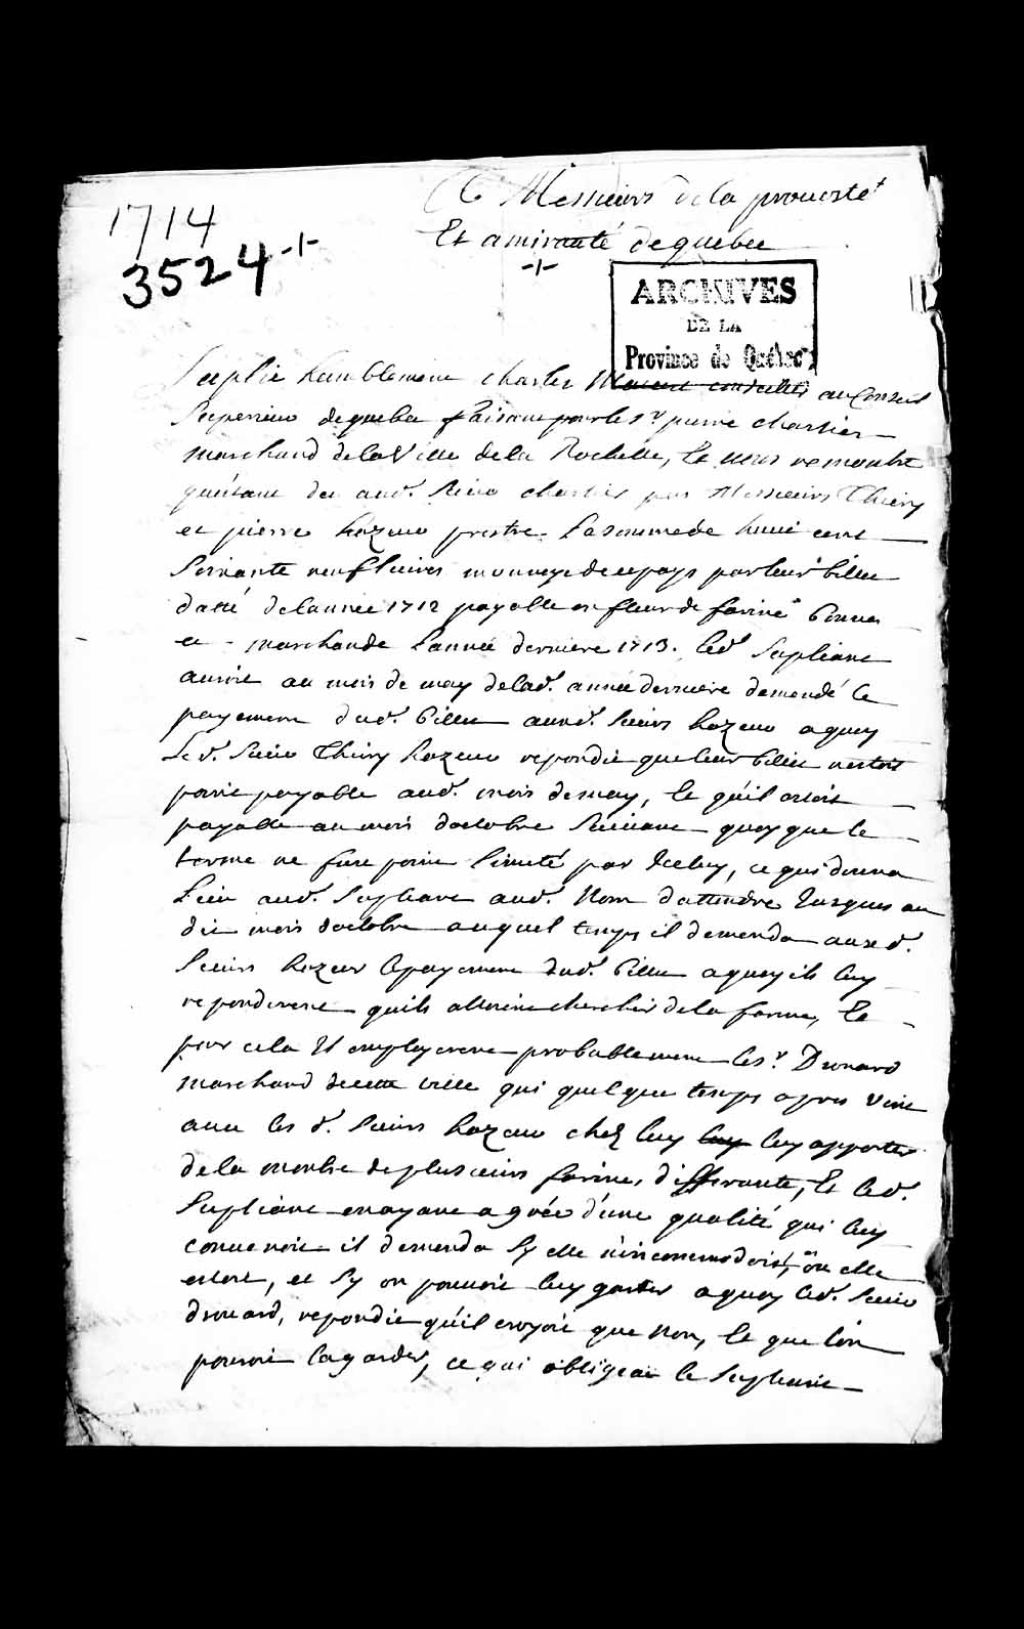 1714
3524
A Messieurs de la prouosté
Et amirauté de quebec
ARCHIVES
DE LA
Province de Québec
Suplie humblement charles conseiller au Conseil
Superieur de quebec faisant pour le Sr pierre chartier
marchand de la Ville de la Rochelle, Et vous remontre
quéstant deu aud. Sieur chartier par Messieurs Thiery
et pierre hazeur prestre. La somme de huict cent
Soixante neuf liures monnoye de ce pays par leur billet
datté de lannée 1712 payable en fleur de farine bonne
et marchande Lannée derniere 1713. led. Supliant
auroit au mois de may de lad. année derniere demendé le
payement dud. billet ausd. Sieurs hazeur a quoy
Led. Sieur Thiery hazeur repondit que leur billet nestoit
point payable aud. mois de may, Et quil estoit
payable au mois doctobre Suiuant quoy que le
terme ne fust point Limité par Iceluy, ce qui donna
Lieu aud. Supliant aud. Nom dattendre Jusques au
dit mois doctobre auquel temps il demenda ausd.
Sieurs hazeur le payement dud. billet a quoy ils luy
reponderent quils alloient chercher de la farine, Et
pour cela Il employerent probablement le Sr Drouard
marchand de cette ville qui quelque temps apres vint
auec les d. Sieurs hazeur chez luy luy luy apporter
de la montre de plusieurs farine, differante, Et led.
Supliant en ayant agréé d'une qualité qui luy
conuenoit il demenda Sy elle n'incommodoit, ou elle
estoit, et Sy on pouuoit luy garder a quoy led. Sieur
drouard, repondit qu'il croyoit que Non, Et que l'on
pouuoit la garder, ce qui obligea le Supliant